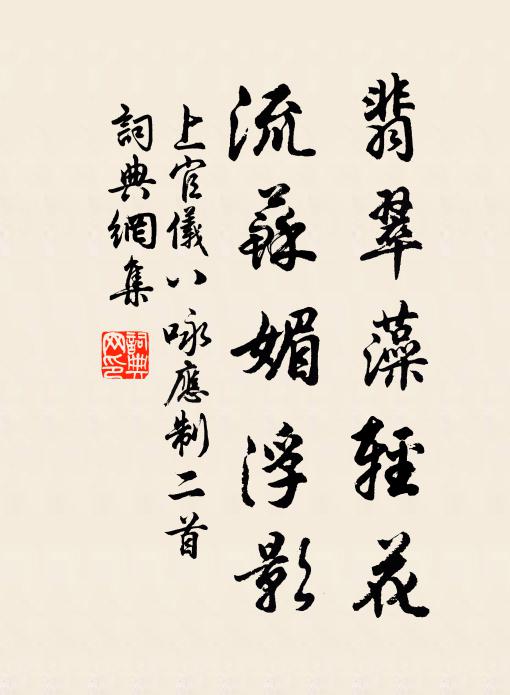 翡翠藻輕花
流蘇媚浮影
上官儀八咏應制二首
詞典網集
詞典網印